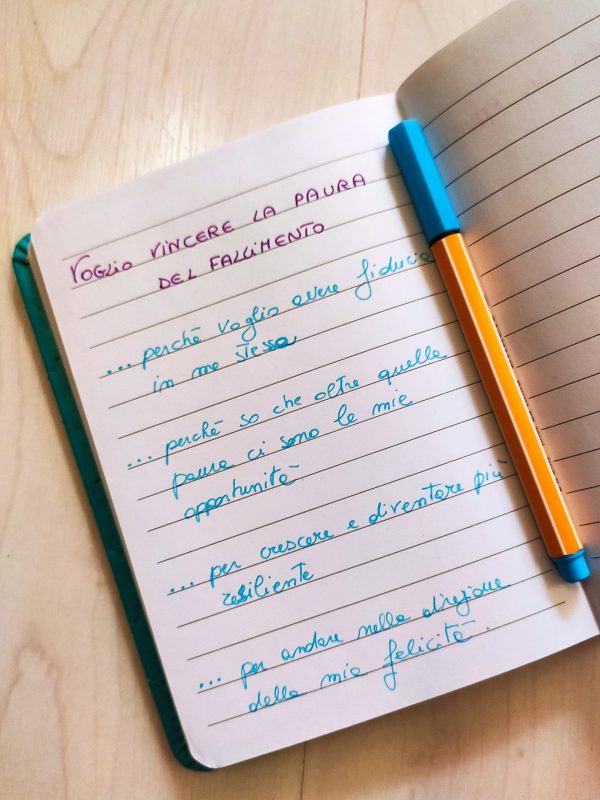 VOGLIO VINCERE LA PAURA
DEL FALLIMENTO
... perché voglio avere fiducia
in me stessa
... perché so che oltre quella
paura ci sono le mie
opportunità
... per crescere e diventare più
resiliente
... per andare nella direzione
della mia felicità.